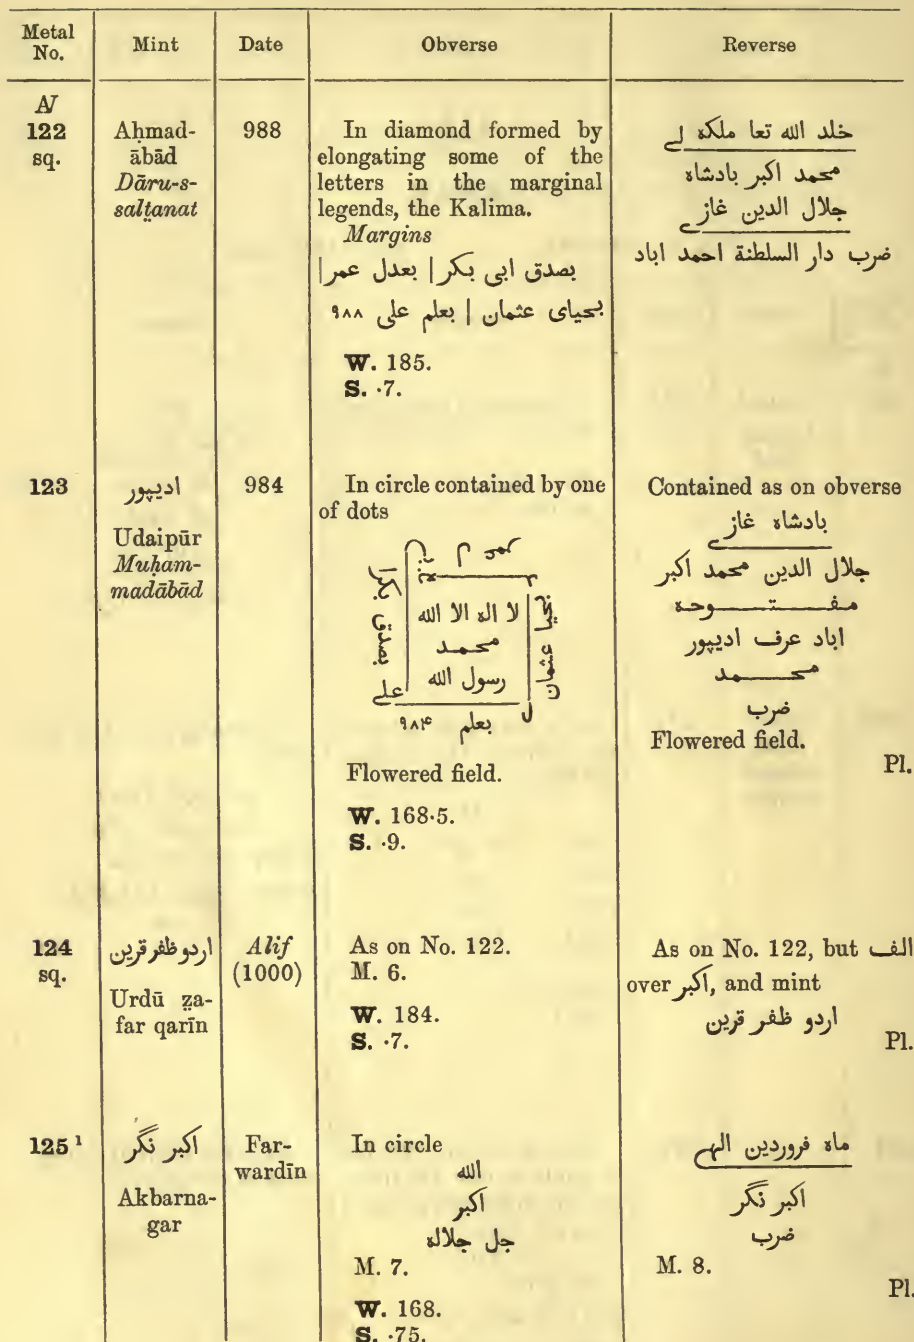 Metal No. Mint Date Obverse Reverse
AV
122
sq.
Aḥmad-
ābād
Dāru-s-
salṭanat
988
In diamond formed by
elongating some of the
letters in the marginal
legends, the Kalima.
Margins
بصدق ابى بكر | بعدل عمر |
بحياى عثمان | بعلم على ٩٨٨
W. 185.
S. ·7.
خلد الله تعا ملكه لے
محمد اكبر بادشاه
جلال الدين غازے
ضرب دار السلطنة احمد اباد
123
اديپور
Udaipūr
Muḥam-
madābād
984
In circle contained by one
of dots
لا اله الا الله
محمد
رسول الله
بصدق بكرا
بحيا عثمان
على
بعلم ٩٨۴
Flowered field.
W. 168·5.
S. ·9.
Contained as on obverse
بادشاه غازے
جلال الدين محمد اكبر
مفتوحه
اباد عرف اديپور
محمد
ضرب
Flowered field.
Pl.
124
sq.
اردو ظفر قرين
Urdū ẓa-
far qarīn
Alif
(1000)
As on No. 122.
M. 6.
W. 184.
S. ·7.
As on No. 122, but الف
over اكبر, and mint
اردو ظفر قرين
Pl.
125 ¹
اكبر نگر
Akbarna-
gar
Far-
wardīn
In circle
الله
اكبر
جل جلاله
M. 7.
W. 168.
S. ·75.
ماه فروردين الهى
اكبر نگر
ضرب
M. 8.
Pl.